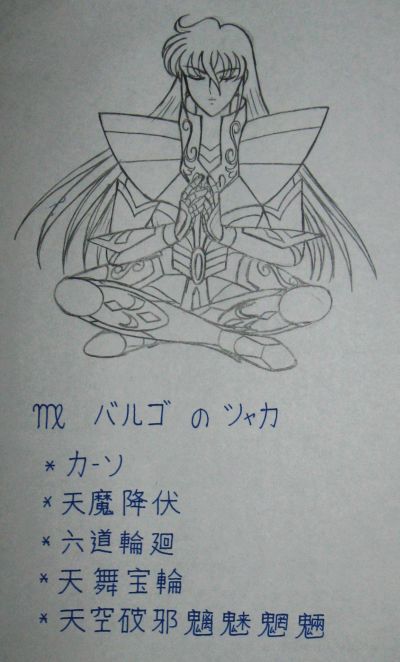 ♍ バルゴ の ツャカ
* カーソ
* 天魔降伏
* 六道輪廻
* 天舞宝輪
* 天空破邪魑魅魍魎